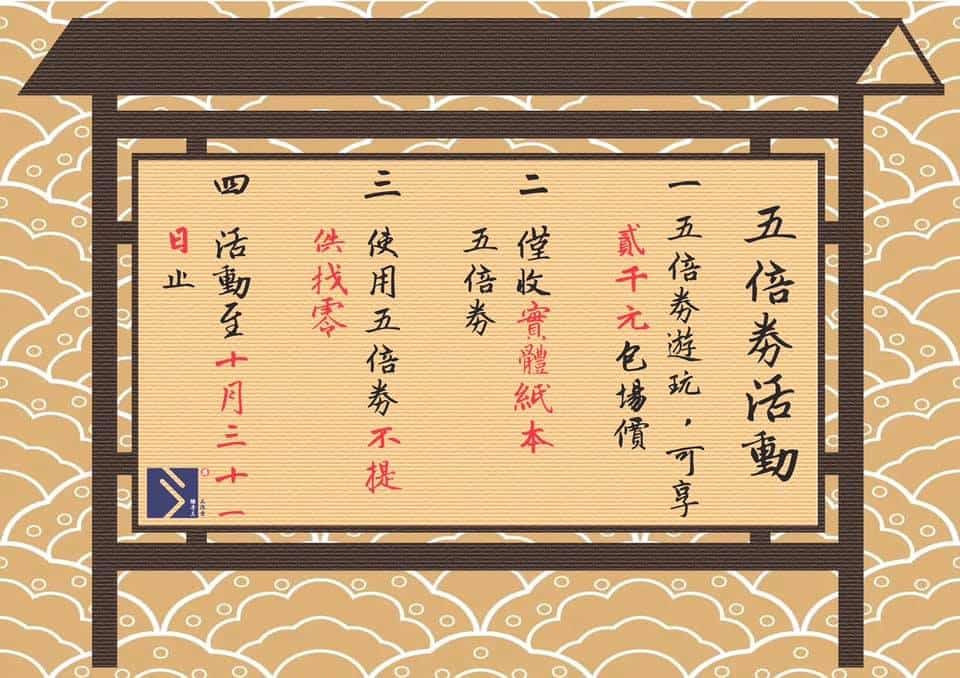 五倍券活動
一 五倍券遊玩，可享
貳千元包場價
二 僅收實體紙本
五倍券
三 使用五倍券不提
供找零
四 活動至十月三十一
日止